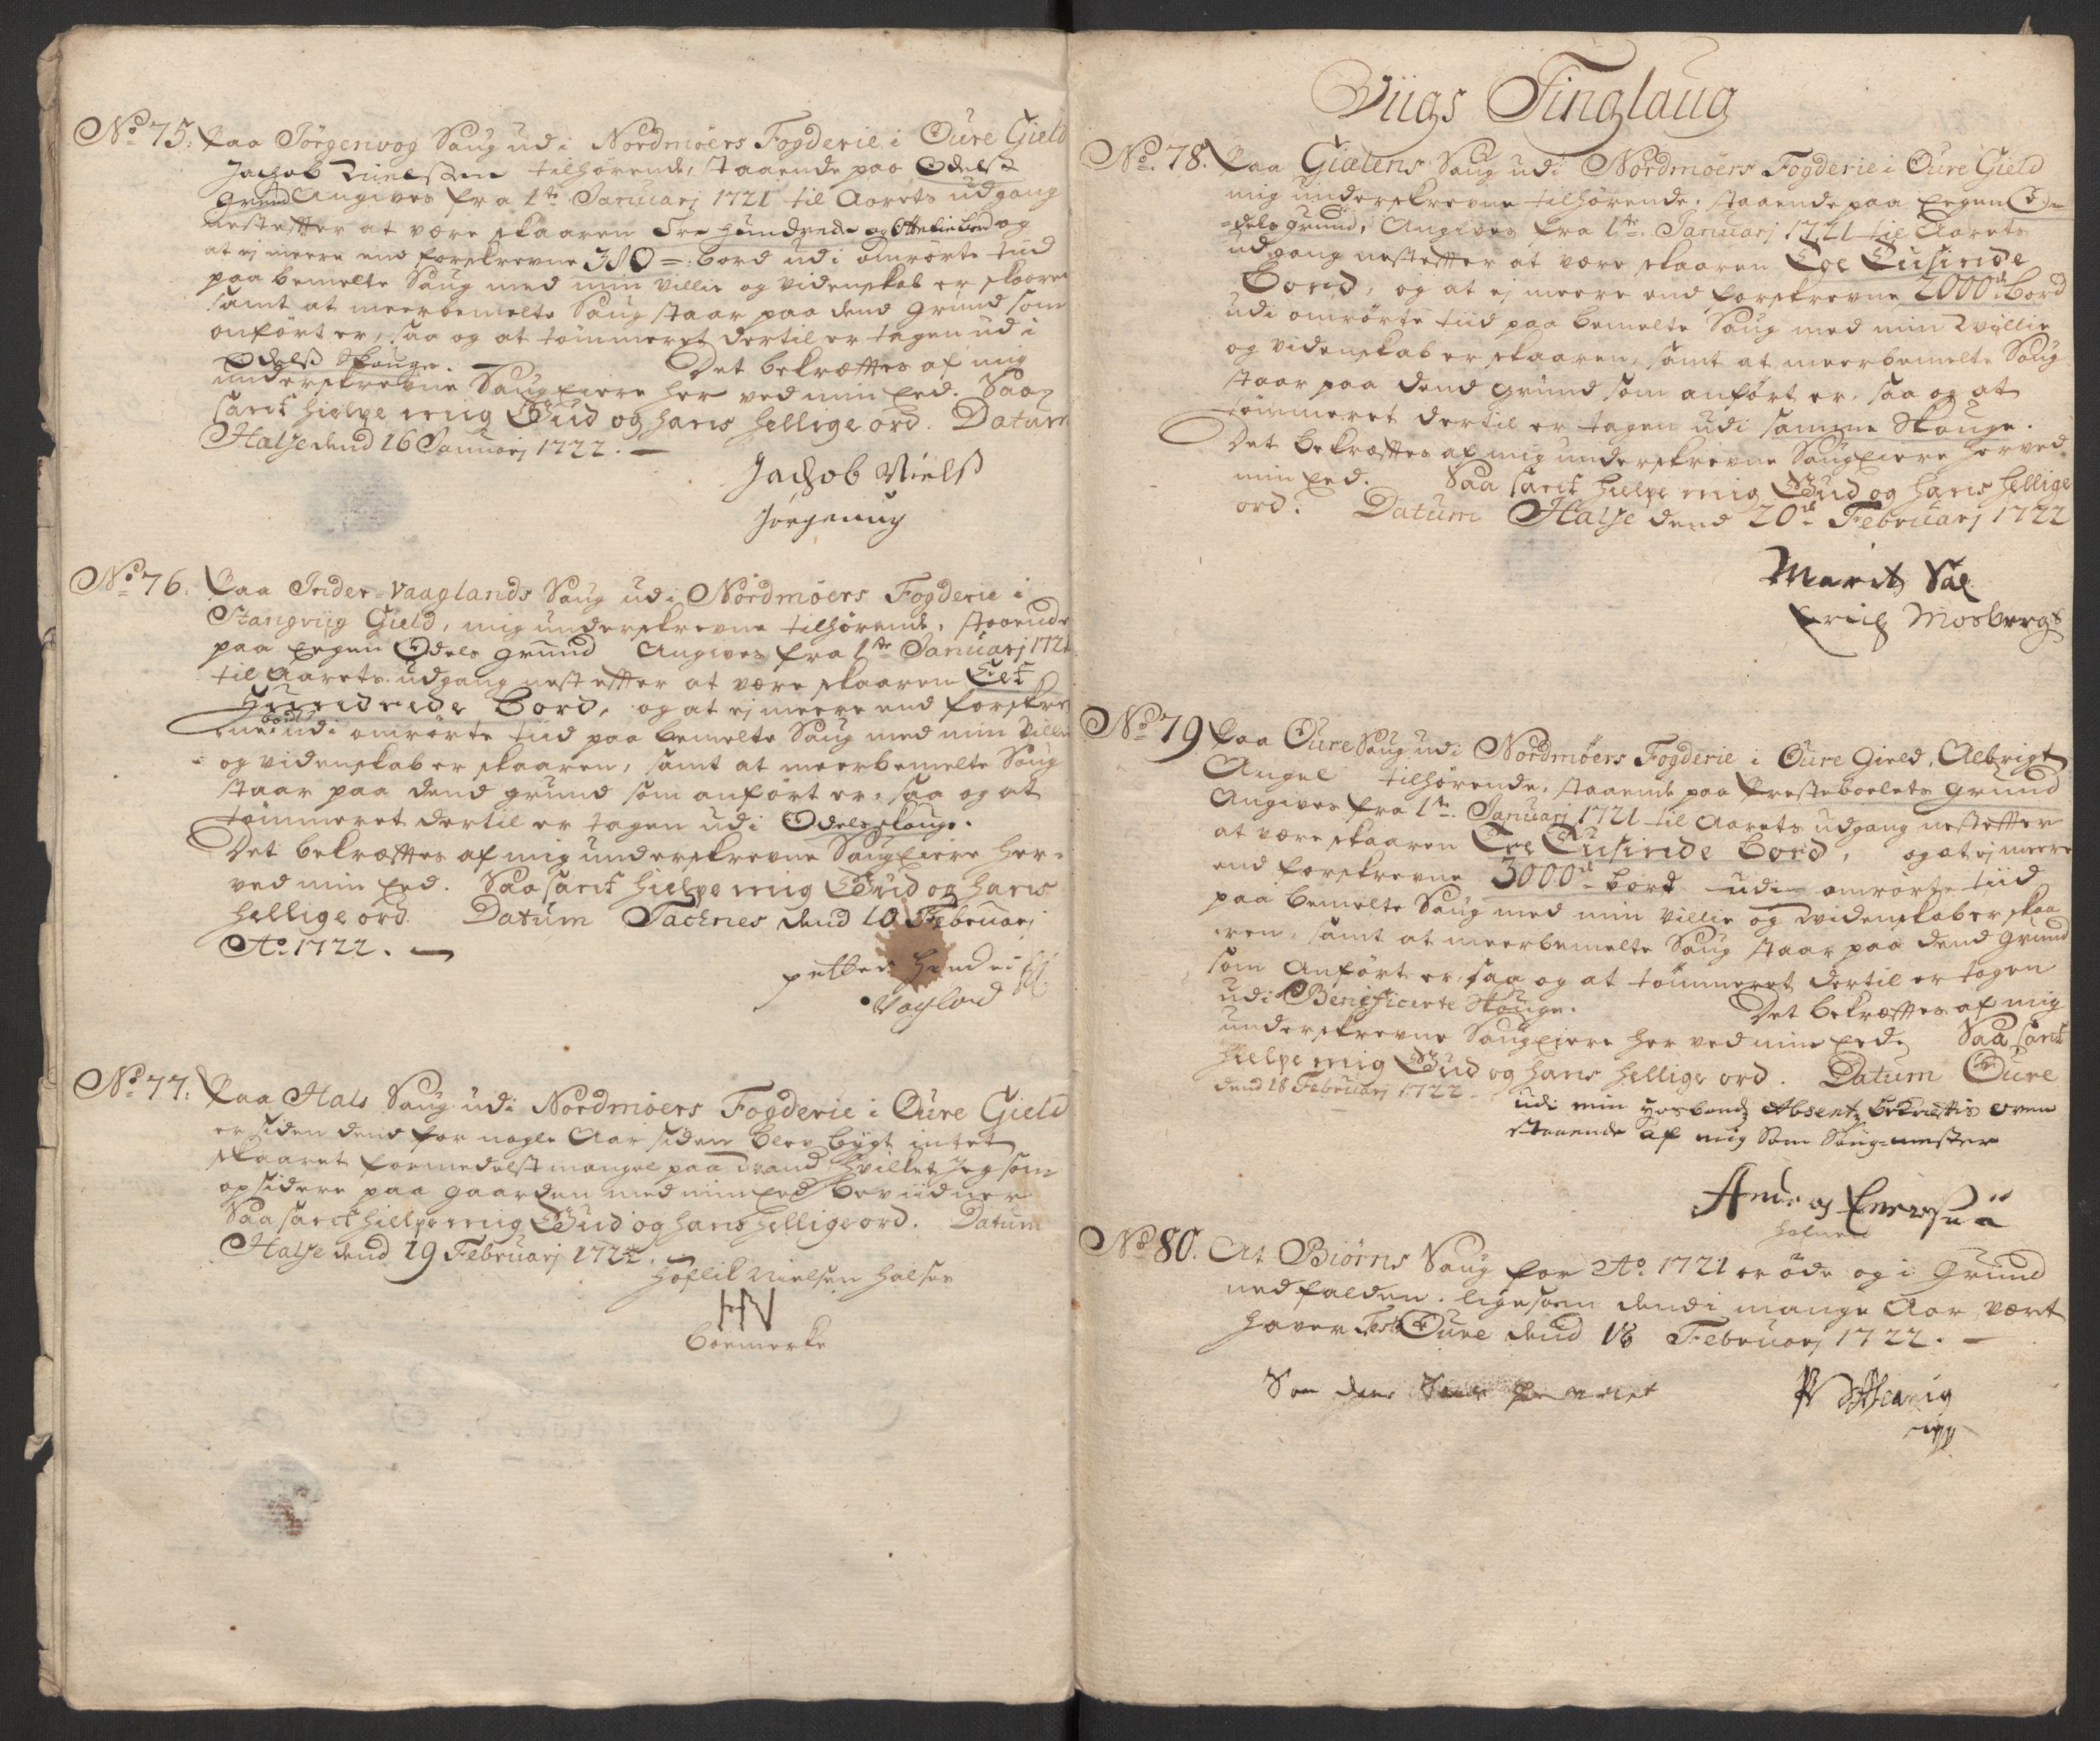 No 75. Paa Jörgenvog Saug udi Nordmöers Fogderie i Oure Gield
Jachob Nielssen tilhörende, staaende paa Odelss
grund Angives fra 1te Januarj 1721 til Aarets udgang
nestefter at være skaaren Tre hundrede og Ottetie bord og
at ej meere end forskrevne 380 = bord udi omrörte tiid
paa bemelte Saug med min villie og videnskab er skaaren
samt at meerbemelte Saug staar paa dend grund som
anfört er, saa og at tömmeret dertil er tagen udi
Odelss Skouge. Det bekræfftes af mig
underskrevne Saug Eiere her ved min Eed. Saa
sandt hielpe mig Gud og hans hellige ord. Datum
Halse dend 16 Januarj 1722.
Jachob Nielss
Jorgenuug
No 76. Paa Inder-Vaaglands Saug udi Nordmöers Fogderie i
Stangviig Gield, mig underskrevne tilhörende, staaende
paa Eegen Odels grund Angives fra 1te Januarj 1721
til Aarets udgang nest efter at være skaaren Eet
Hundrede Bord, og at ej meere end forskre
vne bord udi omrörte tiid paa bemelte Saug med min Villie
og videnskab er skaaren, samt at meerbemelte Saug
staar paa dend grund som anfört er, saa og at
tömmeret dertil er tagen udi Odels skouge.
Det bekræfftes af mig underskrevne Saug Eiere her-
ved min Eed. Saa sandt hielpe mig Gud og hans
hellige ord. Datum Tachnes dend 10 Februarj
Ao. 1722.
petter
Vagland
No 77. Paa Hals Saug udi Nordmöers Fogderie i Oure Gield
er siden dend for nogle Aar siden blev bygt intet
skaaret formedelst mangel paa vand, hvilket Jeg som
opsidere paa gaarden med min Eed beviidner
Saa sandt hielpe mig Gud og hans hellige ord. Datum
Halse dend 19 Februarj 1722.
Nielsen Halses
HN
boemerke
Viigs Tinglaug
No. 78. Paa Gialens Saug udi Nordmöers Fogderie i Oure Gield
mig underskrevne tilhörende, staaende paa Eegen O-
=dels grund, Angives fra 1te Januarj 1721 til Aarets
udgang nestefter at være skaaren Toe Tusinde
Bord, og at ej meere end forskrevne 2000de Bord
udi omrörte tiid paa bemelte Saug med min Villie
og videnskab er skaaren, samt at meerbemelte Saug
staar paa dend grund som anfört er, saa og at
tömmeret dertil er tagen udi samme Skouge.
Det bekræfftes af mig underskrevne Saug Eiere her ved
min Eed. Saa sandt hielpe mig Gud og hans hellige
ord. Datum Halse dend 20de Februarj 1722
Marit Sal
Erich Mosbergs
No 79 Paa Oure Saug udi Nordmöers Fogderie i Oure Gield, Albrigt
Angel tilhörende, staaende paa Presteboelets grund
Angives fra 1te Januarj 1721 til Aarets udgang nestefter
at være skaaren Tre Tusinde Bord, og at ej meere
end forskrevne 3000de bord udi omrörte tiid
paa bemelte Saug med min villie og videnskab er skaa
ren, samt at meerbemelte Saug staar paa dend grund
som Anfört er, saa og at tömmeret dertil er tagen
udi Beneficerte Skouge. Det bekræfftes af mig
underskrevne Saug Eiere her ved min Eed, Saa sandt
hielpe mig Gud og hans hellige ord. Datum Oure
dend 18 Februarj 1722
udi min Hosbonds Absentz bekræfftis oven
staaende af mig Som Saug-mester
Anders
No 80. At Biörns Saug for Ao. 1721 er öde og i Grund
nedfalden, ligesom dend i mange Aar vært
haver Test: Oure dend 18 Februarj 1722.